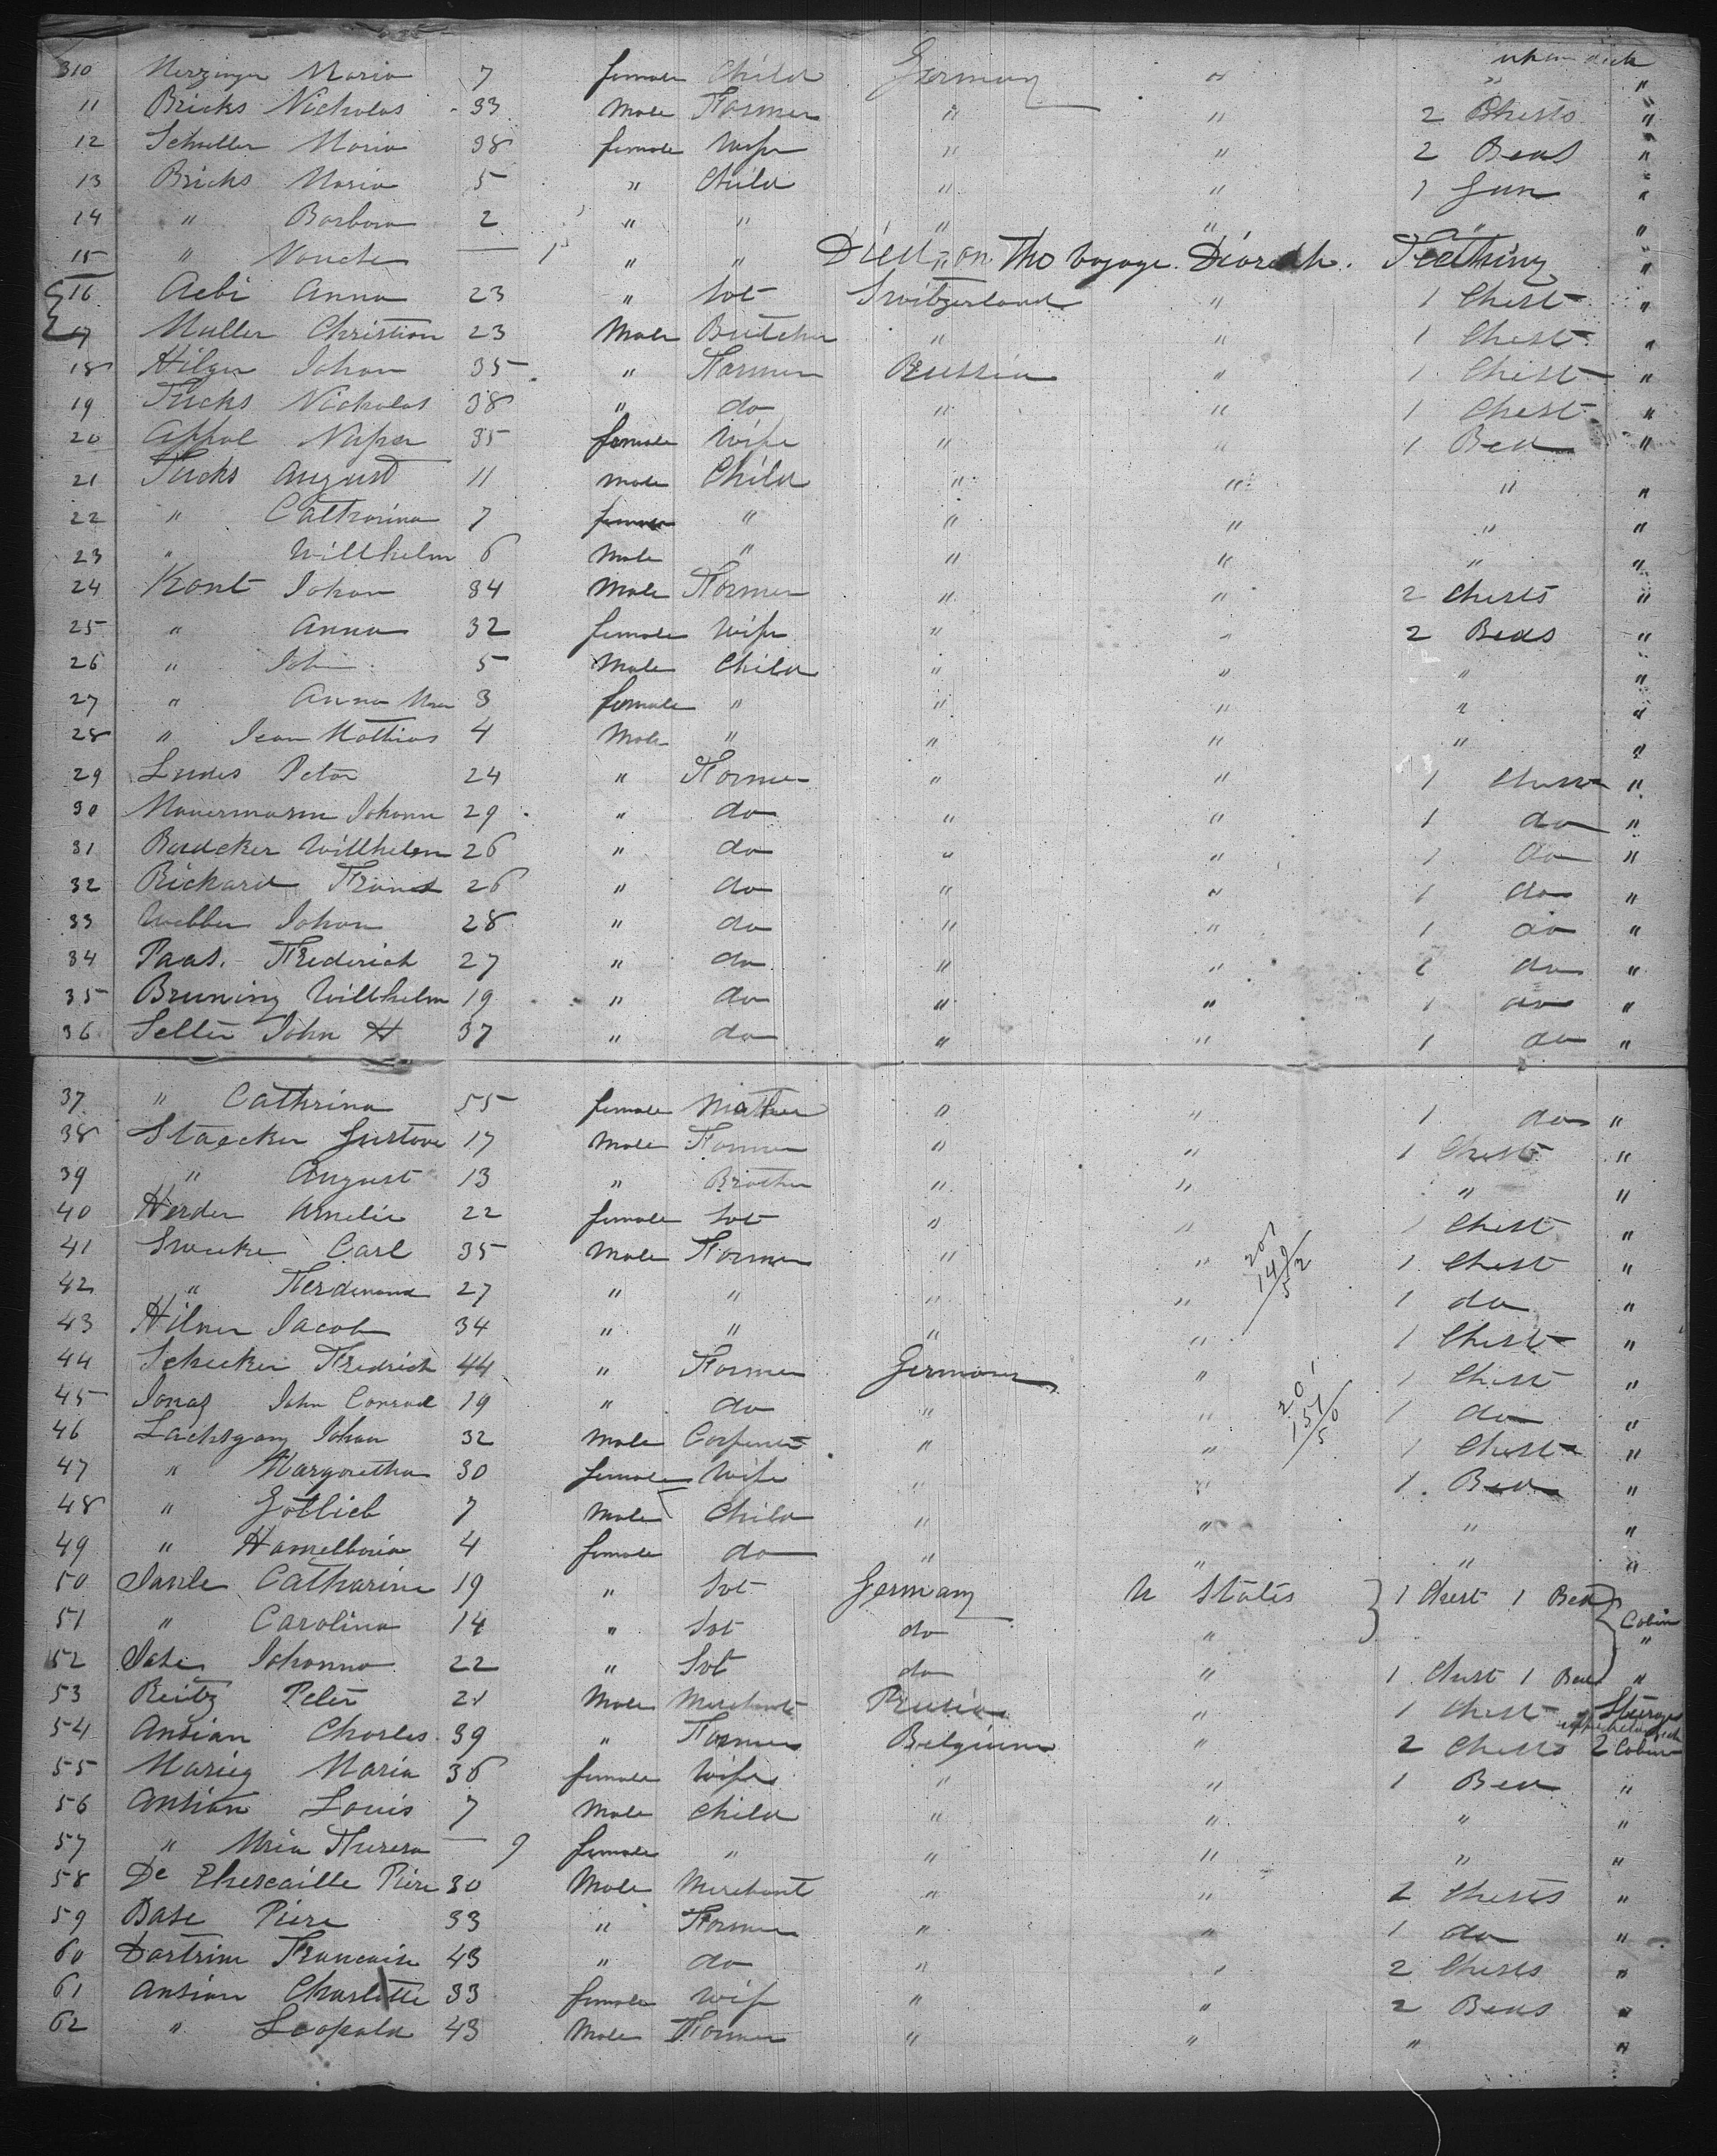 310 Herzinger Maria 7 female Child Germany " " "
11 Bricks Nicholas 33 Male Farmer " " 2 Chests "
12 Schuller Maria 38 female Wife " " 2 Beds "
13 Bricks Maria 5 " Child " " 1 Gun "
14 " Barbara 2 " " " " " "
15 " — 1 " " Died on The Voyage. Teething "
16 Aebi Anna 23 " Svt Switzerland " 1 Chest "
17 Muller Christian 23 Male Butcher " " 1 Chest "
18 Hilger Johan 35 " Farmer Prussia " 1 Chest "
19 Fucks Nickolas 38 " do " " 1 Chest "
20 35 female Wife " " 1 Bed "
21 Fucks August 11 male Child " " " "
22 " Cathrina 7 female " " " " "
23 " Willhelm 6 Male " " " " "
24 Kont Johan 34 Male Farmer " " 2 Chests "
25 " Anna 32 female Wife " " 2 Beds "
26 " John 5 Male Child " " " "
27 " Anna Mar 3 female " " " " "
28 " Jean Mathias 4 Male " " " " "
29 Ludes Peter 24 " Farmer " " 1 Chest "
30 Mauermann Johann 29 " do " " 1 do "
31 Baucker Willhelm 26 " do " " 1 do "
32 Rickard Franz 26 " do " " 1 do "
33 Webber Johan 28 " do " " 1 do "
34 Paas. Frederich 27 " do " " 1 do "
35 Bruning Willhelm 19 " do " " 1 do "
36 Selter John H 37 " do " " 1 do "
37 " Cathrina 55 female Mother " " 1 do "
38 Staecker Gustave 17 Male Farmer " " 1 Chest "
39 " August 13 " Brother " " " "
40 Herder Amelie 22 female Svt " " 1 Chest "
41 Carl 35 Male Farmer " " 1 Chest "
42 " Ferdinand 27 " " " " 1 do "
43 Hilner Jacob 34 " " " " 1 Chest "
44 Schecker Fredrich 44 " Farmer Germany " 1 Chest "
45 Jonas John Conrad 19 " do " " 1 do "
46 Lachsgang Johan 32 Male Carpenter " " 1 Chest "
47 " Margaretha 30 female Wife " " 1 Bed "
48 " Gotlieb 7 Male Child " " " "
49 " 4 female do " " " "
50 Catharine 19 " Svt Germany U States 1 Chest 1 Bed Cabin
51 " Carolina 14 " Svt do " "
52 Johanna 22 " Svt do " 1 Chest 1 Bed "
53 Reitz Peter 21 Male Merchant Prussia " 1 Chest Sturage
54 Ansian Charles 39 " Farmer Belgium " 2 Chests 2 Cabin
55 Marieg Maria 36 female Wife " " 1 Bed "
56 Ansian Louis 7 Male Child " " " "
57 " Mria Theresa — 9 female " " " " "
58 De Piere 30 Male Merchant " " 2 Chests "
59 Base Piere 33 " Farmer " " 1 do "
60 Dartrine Francaise 43 " do " " 2 Chests "
61 Ansian Charlotte 33 female Wife " " 2 Beds "
62 " Leopold 43 Male Farmer " " " "